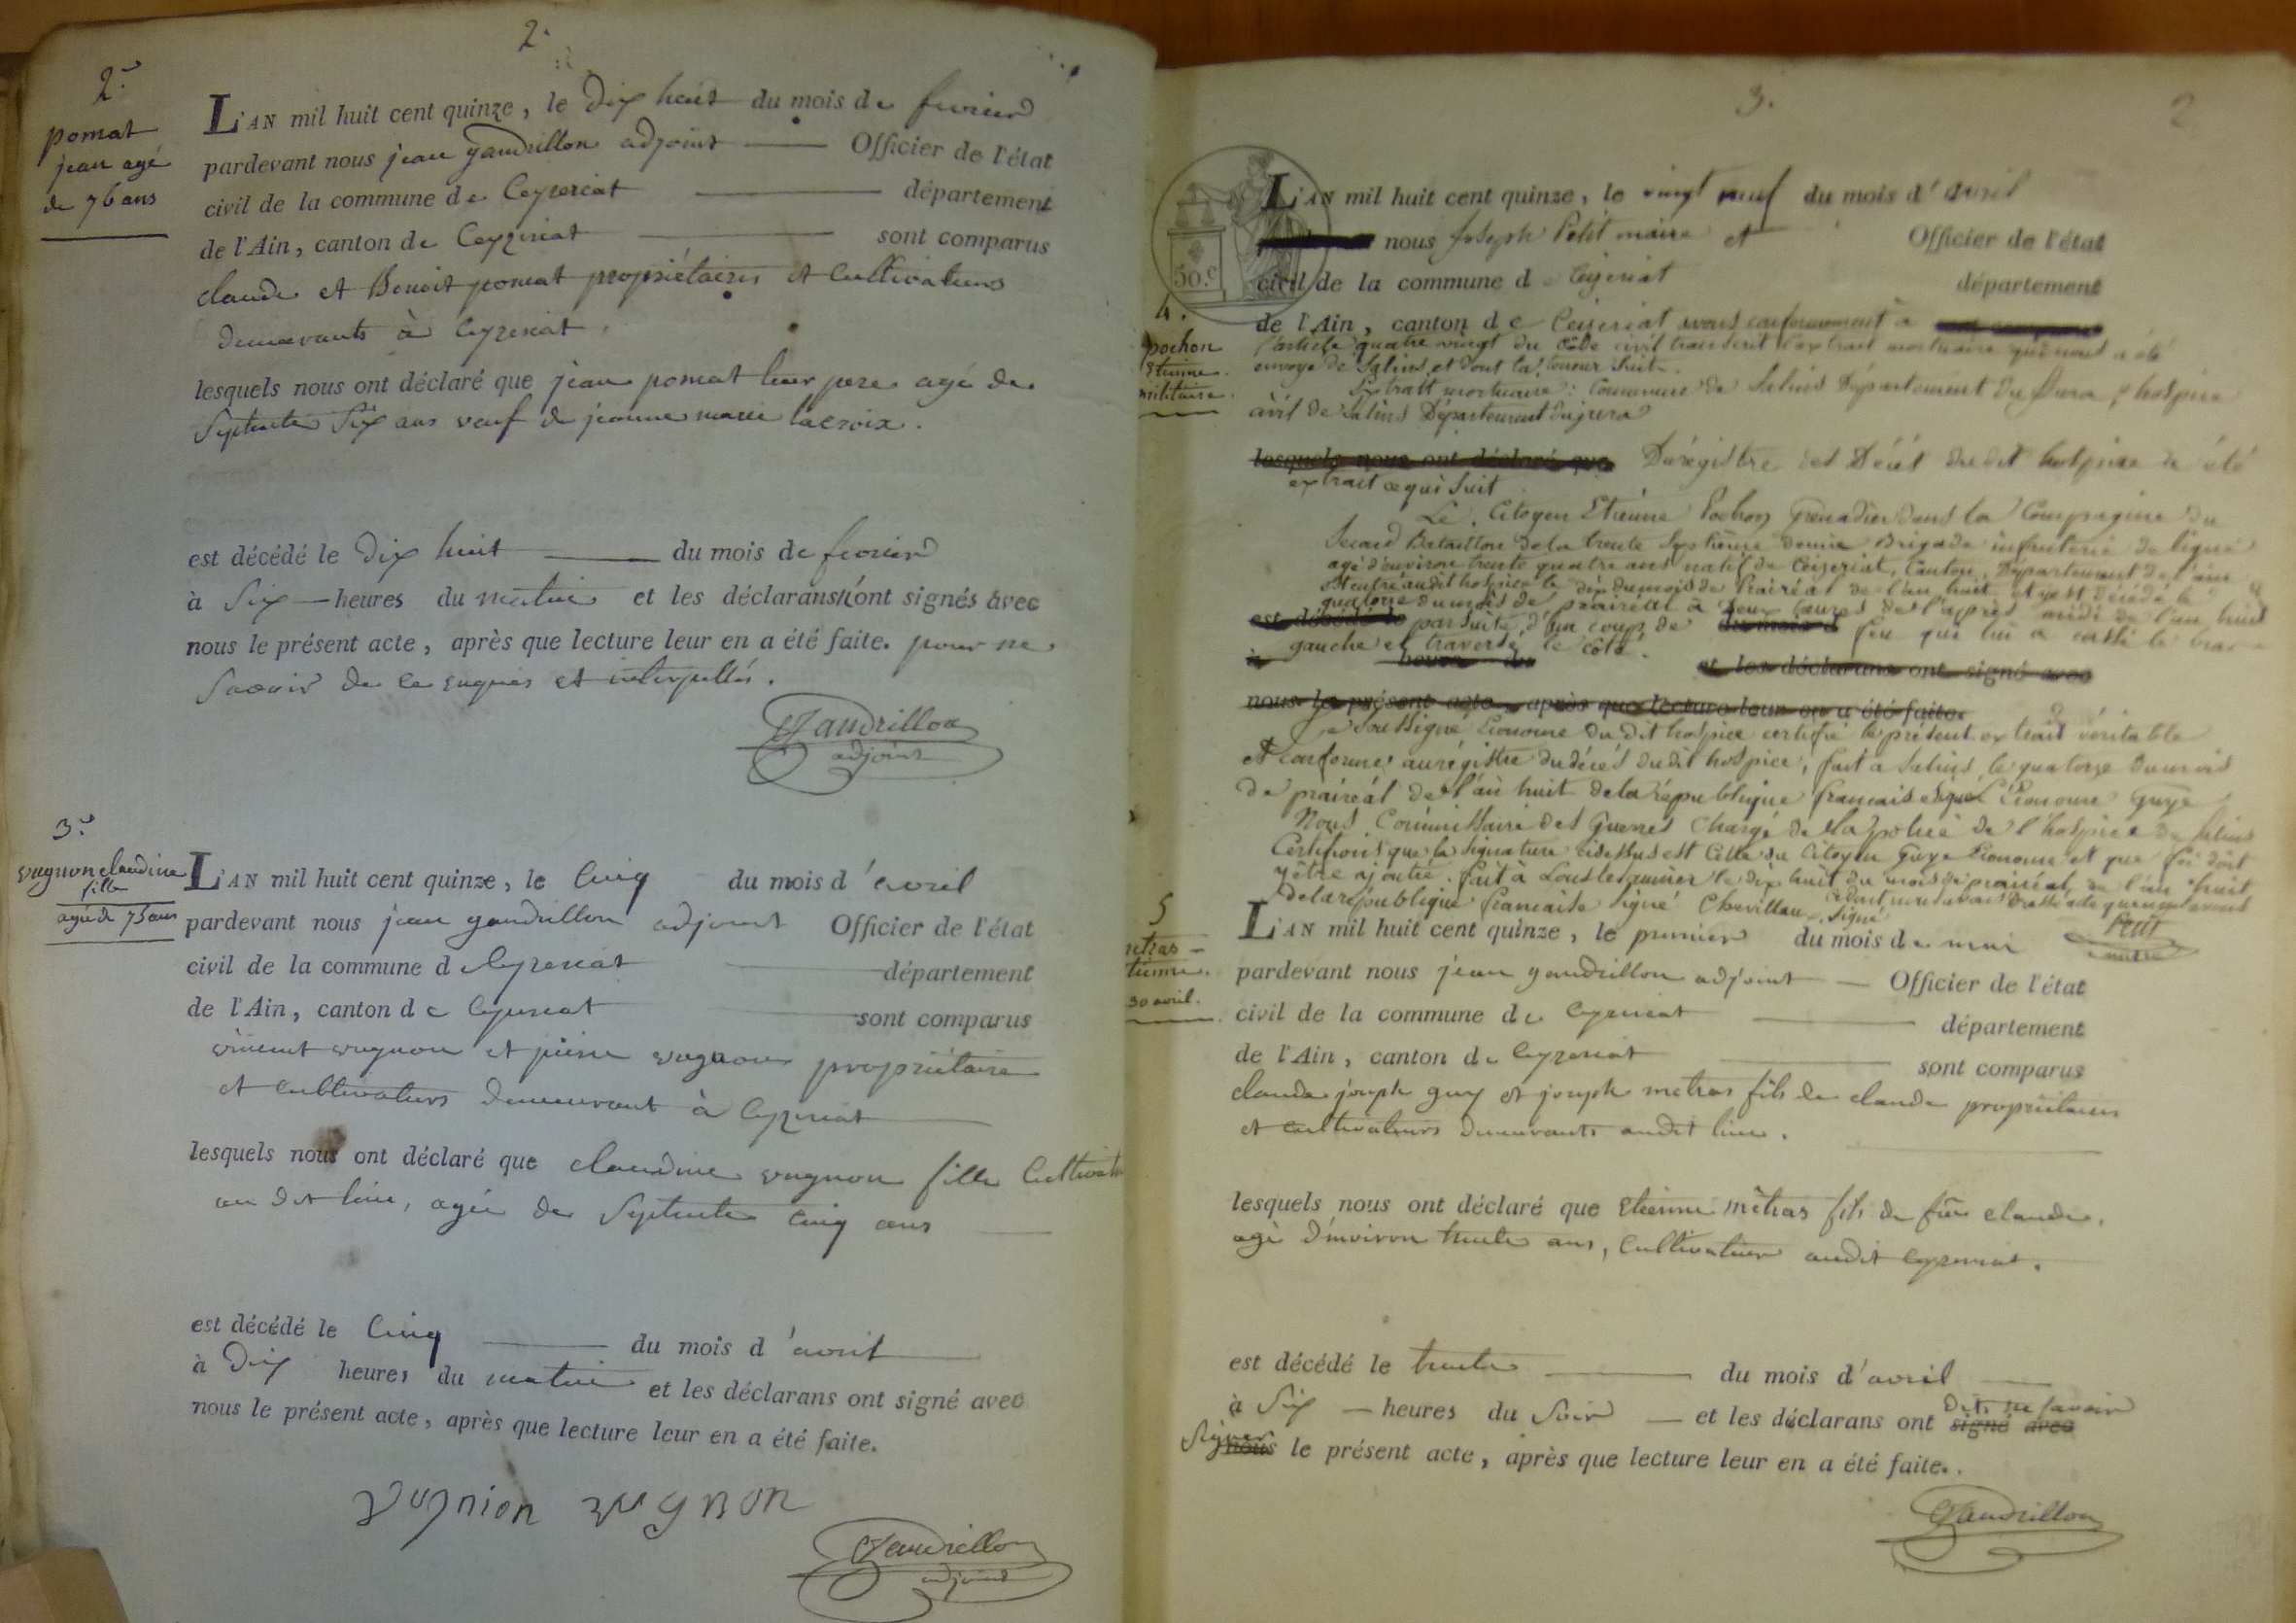 2.
2.e
pomat
jean agé
de 76 ans
L'AN mil huit cent quinze, le dix huit du mois de fevrier
pardevant nous jean gandrillon adjoint Officier de l'état
civil de la commune de Ceyzeriat département
de l'Ain, canton de Ceyzeriat sont comparus
claude et Benoit pomat propriétaires et Cultivateurs
demeurants à Ceyzeriat.
lesquels nous ont déclaré que jean pomat leur pere agé de
Septente Six ans veuf de jeanne marie lacroix.
est décédé le dix huit du mois de fevrier
à Six heures du matin et les déclarans n'ont signés avec
nous le présent acte, après que lecture leur en a été faite. pour ne
Savoir de ce enquis et interpellés.
Gandrillon
adjoint
3.e
vugnon claudine
fille
agée de 75 ans
L'AN mil huit cent quinze, le Cinq du mois d'avril
pardevant nous jean gandrillon adjoint Officier de l'état
civil de la commune de Ceyzeriat département
de l'Ain, canton de Ceyzeriat sont comparus
vincent vugnon et pierre vugnon propriétaire
et Cultivateurs demeurant à Ceyzeriat
lesquels nous ont déclaré que claudine vugnon fille Cultivat
au dit lieu, agée de Septente Cinq ans
est décédé le Cinq du mois d'avril
à Dix heures du matin et les déclarans ont signé avec
nous le présent acte, après que lecture leur en a été faite.
vugnion vugnon
Gandrillon
adjoint
3.
2
50.c
L'AN mil huit cent quinze, le vingt neuf du mois d'avril
nous Joseph Petit maire et Officier de l'état
civil de la commune de Ceyzeriat département
4.
pochon
Etienne
militaire.
de l'Ain, canton de Ceyzeriat avons conformement à
l'article quatre vingt du Code civil transcrit l'extrait mortuaire qui nous a été
envoyé de Salins et dont la teneur Suit.
Extrait mortuaire : Commune de Salins Département du Jura, hospice
civil de Salins Département du jura
lesquels nous ont déclaré que Du régistre des Décès dudit hospice a été
extrait ce qui Suit
Le Citoyen Etienne Pochon Grenadier dans la Compagnie du
Second Bataillon de la trente Septième demie Brigade infanterie de ligne
agé d'environ trente quatre ans natif de Ceizeriat, Canton, Département de l'ain
est entré audit hospice le dix du mois de Prairéal de l'an huit et y est décédé le
quatorze du mois de prairéal à deux heures de l'après midi de l'an huit
est décédé le par Suite d'un coup de du mois d feu qui lui a cassé le bras
gauche et traversé le côté.
à heures du et les déclarans ont signé avec
nous le présent acte, après que lecture leur en a été faite.
Je Soussigné Econome du dit hospice certifie le présent extrait véritable
et conforme au régistre du décés dudit hospice, fait à Salins le quatorze du mois
de prairéal de l'an huit de la république francaise Signé L'Econome Guye
Nous Commissaire des Guerres Chargé de la police de l'hospice de Salins
Certifions que la Signature cidessus est Celle du Citoyen Guye Econome et que foi doit
y être ajoutée. fait à Lons le Saunier le dix huit du mois de prairéal de l'an huit
De la république francaise Signé Chevillau
Signé
Petit
maire
5
metras
Etienne.
30 avril.
L'AN mil huit cent quinze, le premier du mois de mai
pardevant nous jean gandrillon adjoint Officier de l'état
civil de la commune de Ceyzeriat département
de l'Ain, canton de Ceyzeriat sont comparus
claude joseph guy et joseph metras fils de claude propriétaires
et Cultivateurs demeurants audit lieu.
lesquels nous ont déclaré que Etienne métras fils de feu claude,
agé d'environ trente ans, Cultivateur audit Ceyzeriat.
est décédé le trente du mois d'avril
à Six heures du Soir et les déclarans ont signé avec dits ne Savoir
Signer nous le présent acte, après que lecture leur en a été faite.
Gandrillon